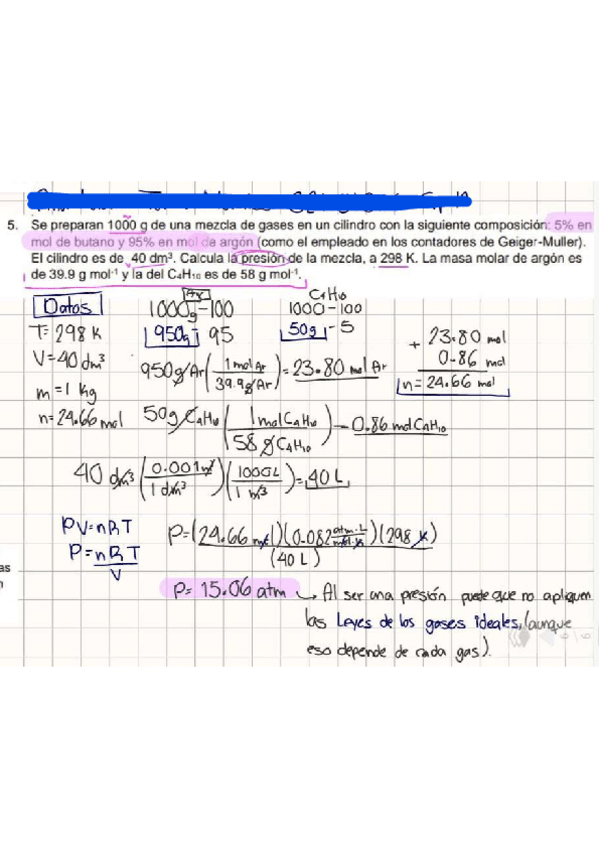 5. Se preparan 1000 g de una mezcla de gases en un cilindro con la siguiente composición: 5% en
mol de butano y 95% en mol de argón (como el empleado en los contadores de Geiger-Muller).
El cilindro es de 40 dm³. Calcula la presión de la mezcla, a 298 K. La masa molar de argón es
de 39.9 g mol⁻¹ y la del C₄H₁₀ es de 58 g mol⁻¹.
Datos
T= 298 K
V= 40 dm³
m = 1 Kg
n= 24.66 mol
Ar
1000g-100
950g - 95
C₄H₁₀
1000-100
50g - 5
+ 23.80 mol
0.86 mol
n= 24.66 mol
950g Ar (1 mol Ar / 39.9g Ar) = 23.80 mol Ar
50g C₄H₁₀ (1 mol C₄H₁₀ / 58 g C₄H₁₀) = 0.86 mol C₄H₁₀
40 dm³ (0.001m³ / 1 dm³) (1000L / 1 m³) = 40 L
PV=nRT
P= nRT / V
P= (24.66 mol)(0.082 atm·L / mol·K)(298 K) / (40 L)
P= 15.06 atm → Al ser una presión puede que no apliquen
las Leyes de los gases ideales, (aunque
eso depende de cada gas).
as